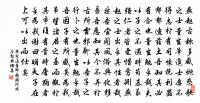 燕趙古稱多感慨悲歌
之士董生舉進士連不
得志於有司懷抱利器
鬱鬱適茲土吾知其必
有合也董生勉乎哉夫
以子之不遇時苟慕義
彊仁者皆愛惜焉矧燕
趙之士出乎其性者哉
然吾嘗聞風俗與化移
易吾惡知其今不異於
古所云邪聊以吾子之
行卜之也董生勉乎哉
吾因子有所感矣為我
弔望諸君之墓而觀於
其市復有昔時屠狗者
乎為我謝曰明天子在
上可以出而仕矣